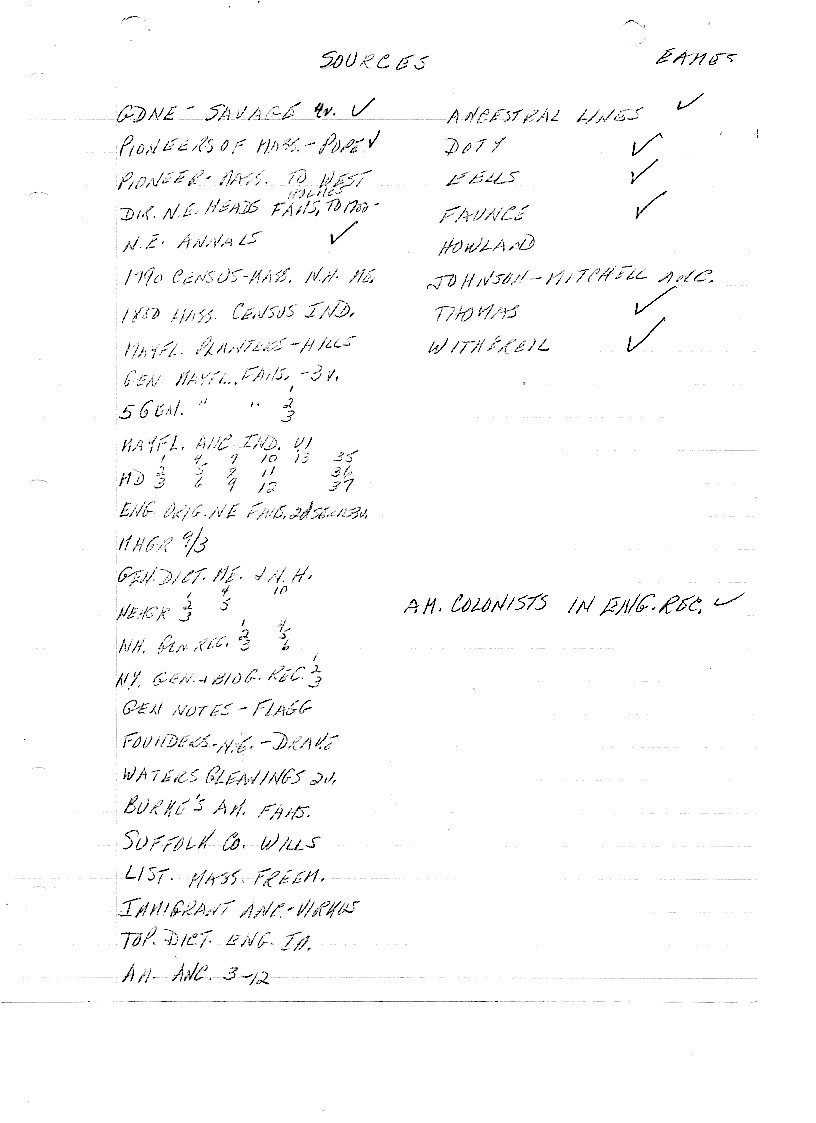 SOURCES
EAMES
GDNE - SAVAGE 4v. ✓
PIONEERS OF MASS. - POPE ✓
PIONEER - MASS. TO WEST
HOLMES
DIR. N.E. HEADS FAMS, TO 1700 -
N.E. ANNALS ✓
1790 CENSUS - MASS. N.H. ME.
1850 MASS. CENSUS IND.
MAYFL. PLANTERS - HILLS
GEN. MAYFL. FAMS. - 3 v.
5 GEN. " " 1 2 3
MAYFL. ANC. IND. V1
MD 1 2 3 4 5 6 7 9 10 11 12 13 35 36 37
ENG. ORIG. NE FAMS. 2d SER.
MHGR 9/3
GEN. DICT. ME. & N.H.
NEHGR 1 2 3 4 5 10
NH. GEN REC. 1 2 3 4 5 6
NY. GEN. & BIOG. REC. 1 2 3
GEN NOTES - FLAGG
FOUNDERS - N.E. - DRAKE
WATERS GLEANINGS 2v.
BURKE'S AM. FAMS.
SUFFOLK CO. WILLS
LIST. MASS. FREEM.
IMMIGRANT ANC. - VIRKUS
TOP. DICT. ENG. IM.
AM. ANC. 3-12
ANCESTRAL LINES ✓
DOTY ✓
EELLS ✓
FAUNCE ✓
HOWLAND
JOHNSON - MITCHELL ANC.
THOMAS ✓
WITHERELL ✓
AM. COLONISTS IN ENG. REC. ✓